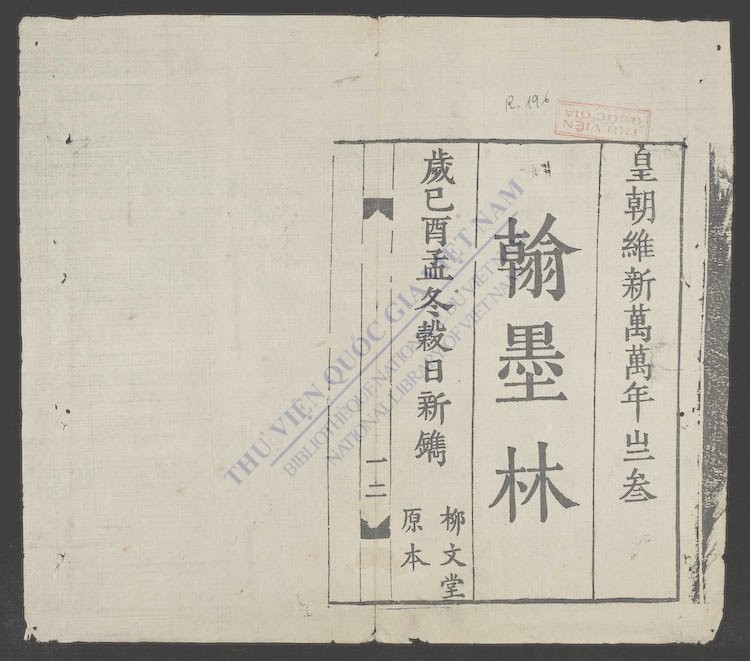 R. 196
THƯ VIỆN
QUỐC GIA
皇朝維新萬萬年叁
翰墨林
歲己酉孟冬穀日新鐫
柳文堂
原本
一二
THƯ VIỆN QUỐC GIA VIỆT NAM
BIBLIOTHÈQUE NATIONALE DU VIETNAM
NATIONAL LIBRARY OF VIETNAM